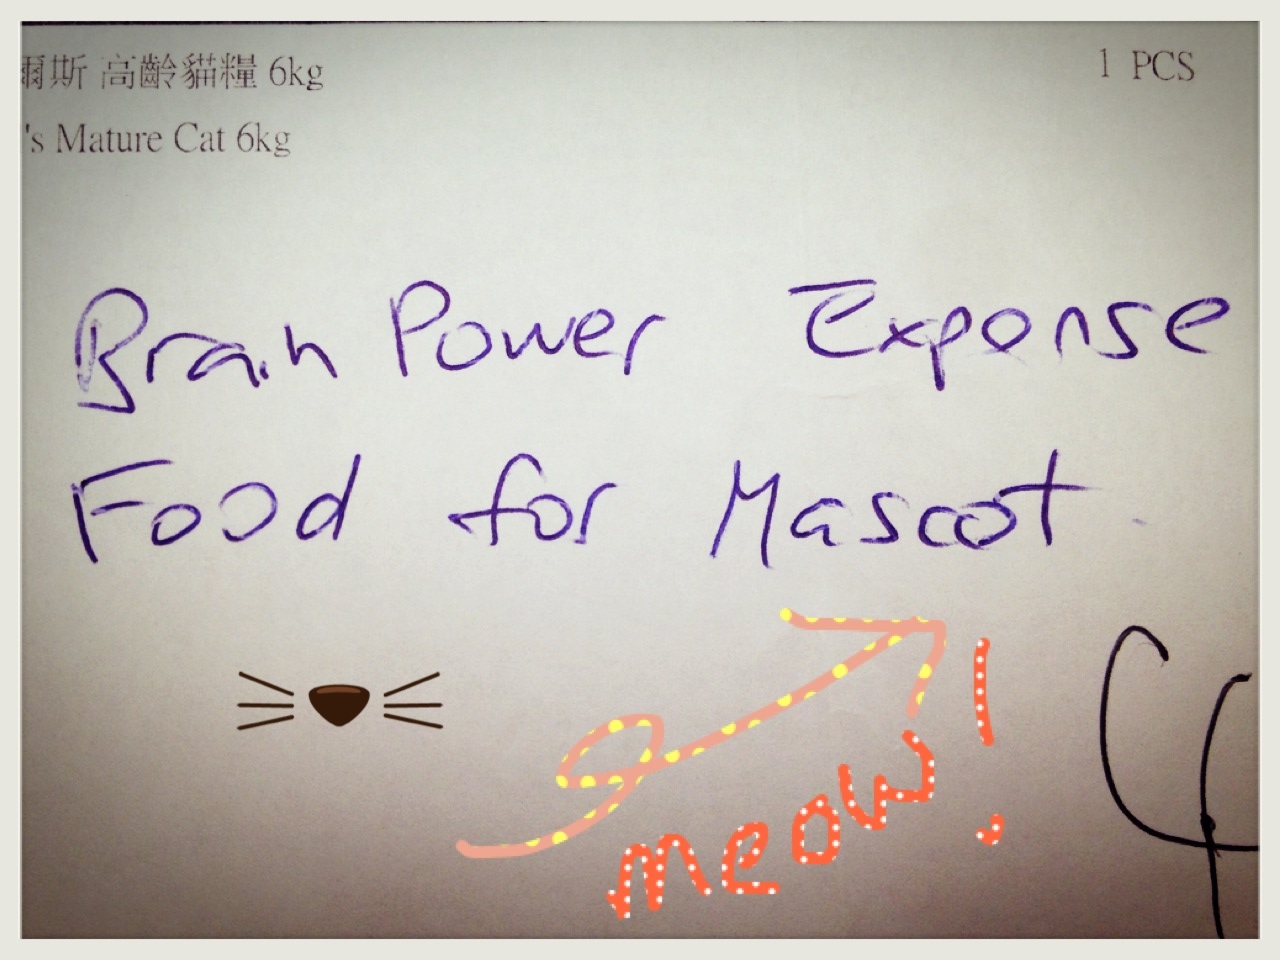 爾斯 高齡貓糧 6kg 1 PCS
's Mature Cat 6kg
Brain Power Expense
Food for Mascot.
meow!